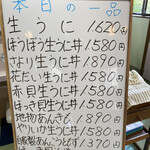 本日の一品
生うに 1620円
ほうぼう生うに丼 1580円
さより生うに丼 1890円
花だい生うに丼 1580円
赤貝生うに丼 1580円
ほっき貝生うに丼 1580円
地物あんきも 1890円
やりいか生うに丼 1580円
自家製あんこうどす 1370円